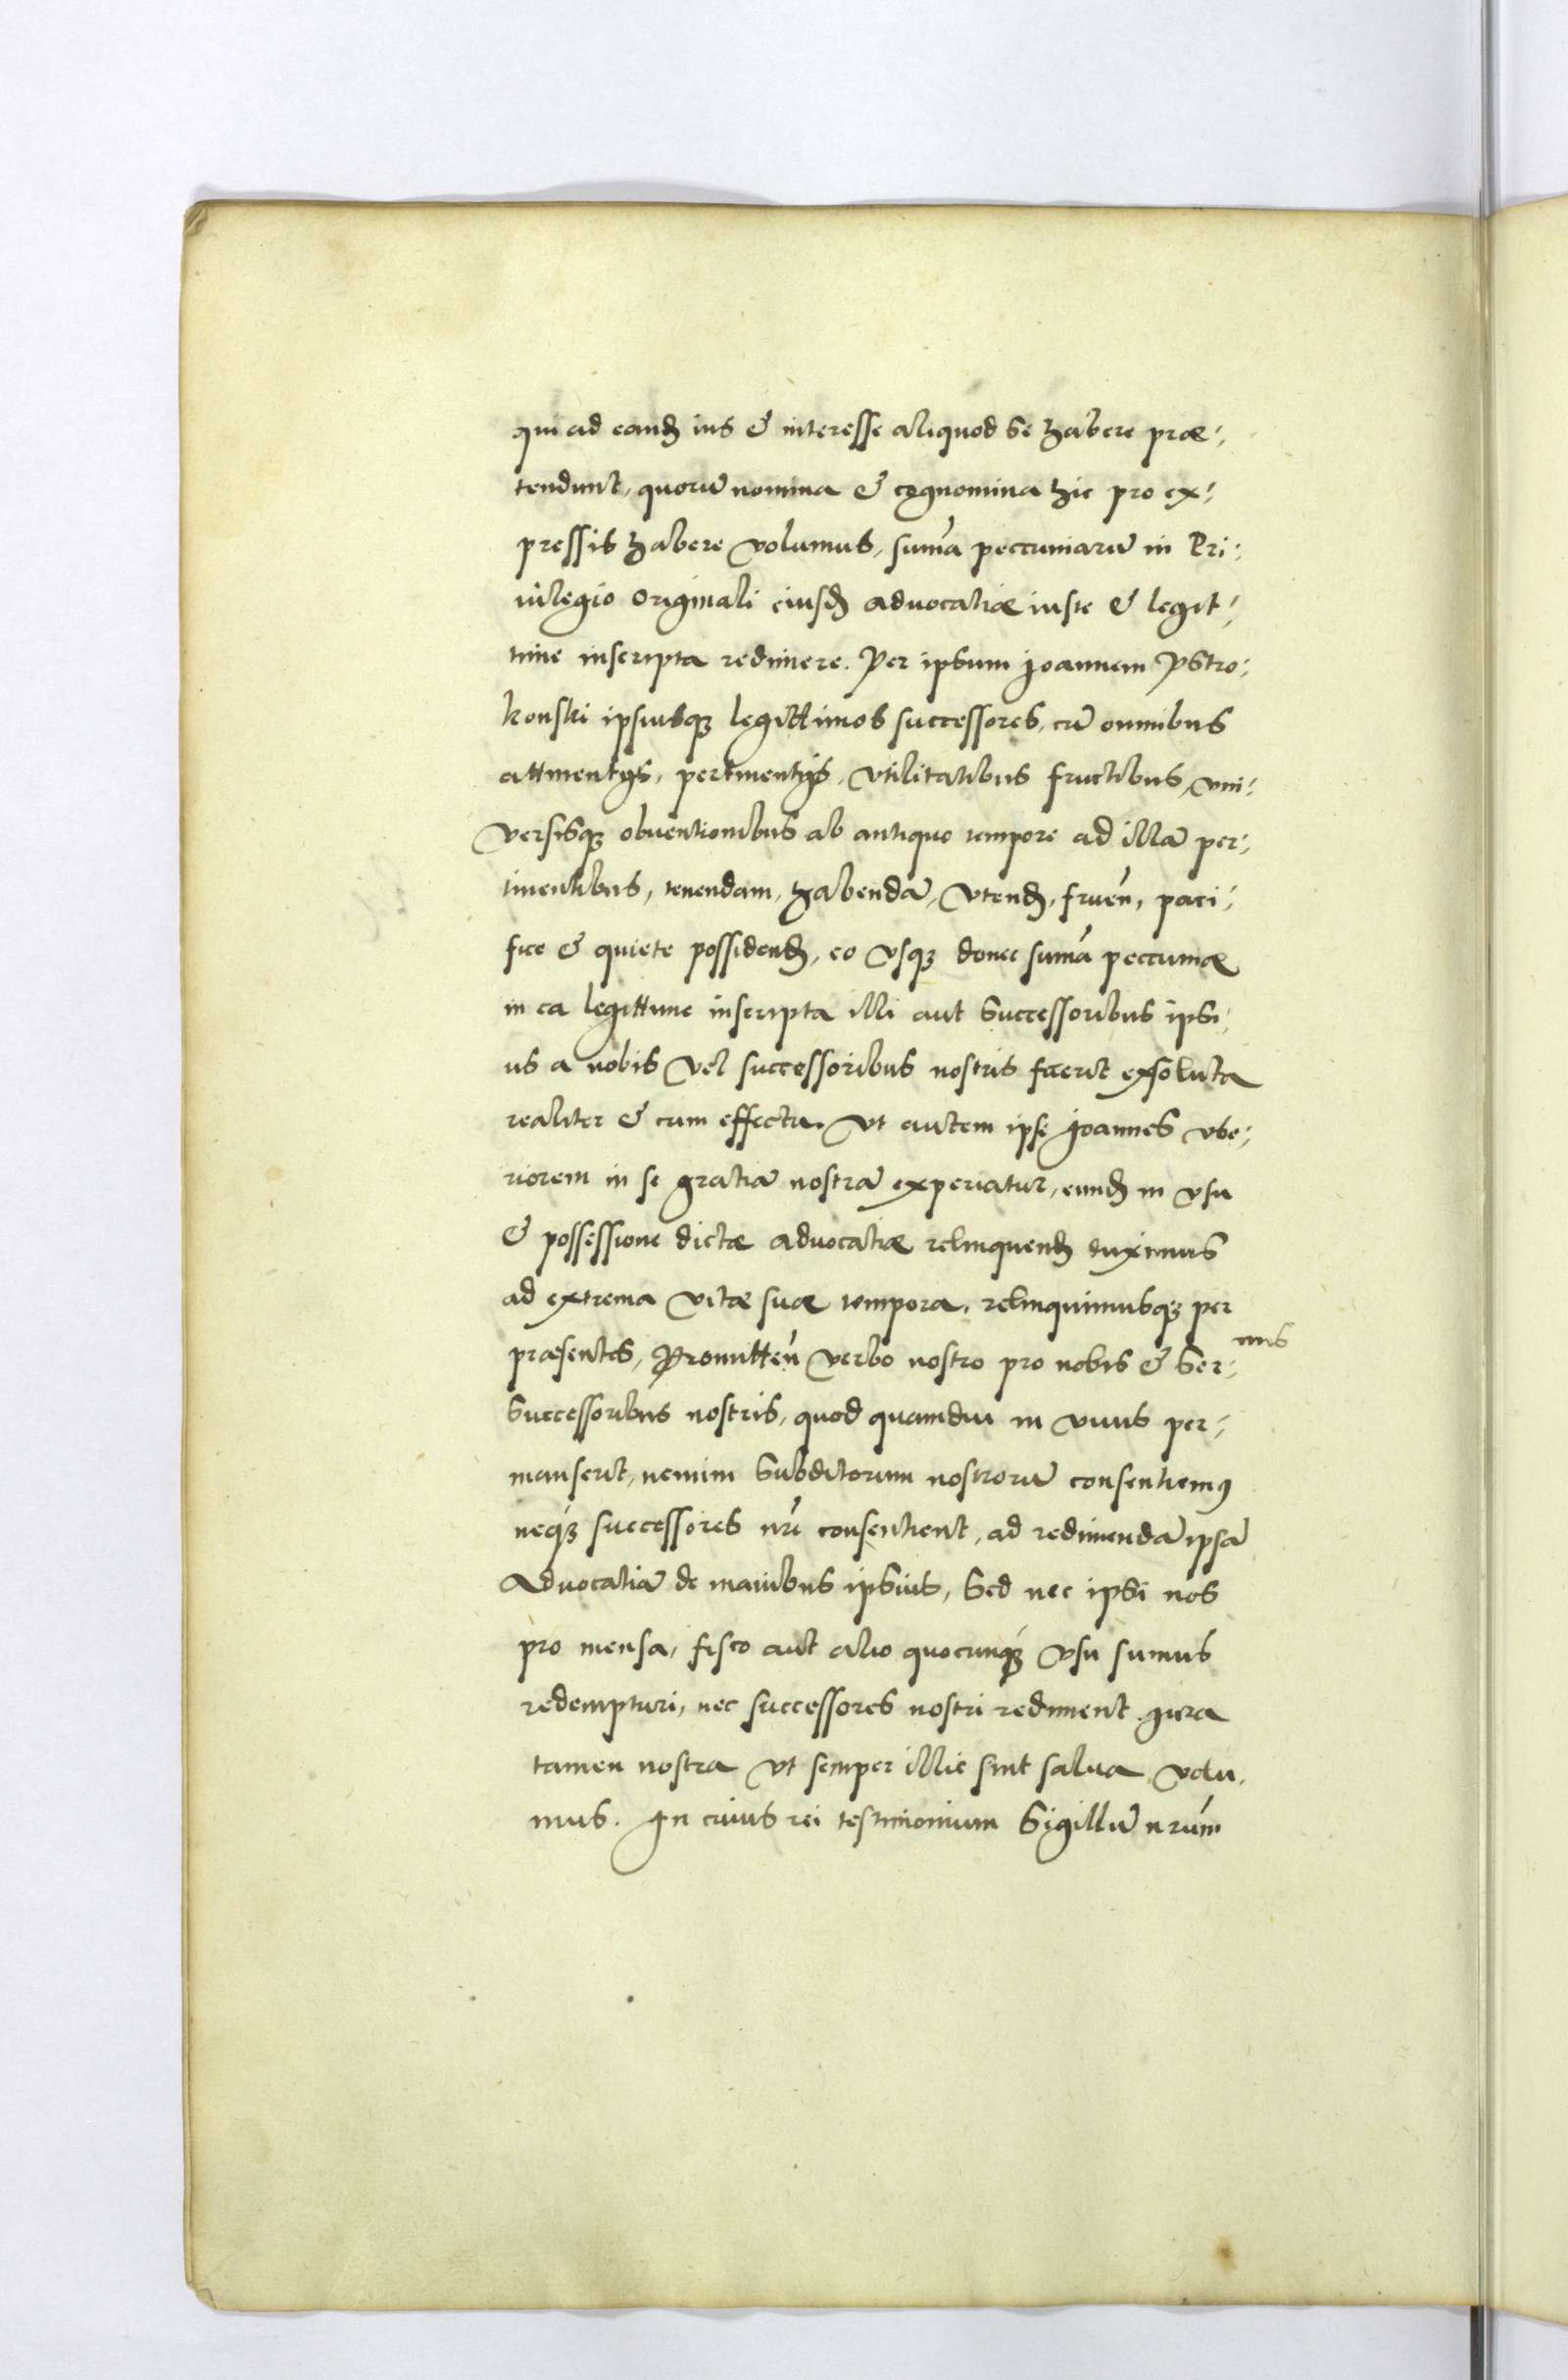 qui ad eand ius & interesse aliquod se habere præ-
tendunt, quorū nomina & cognomina hic pro ex-
pressis habere volumus, sum̄a peccuniarū in Pri-
uilegio originali eiusd aduocatiæ iuste & legit-
time inscripta redimere. Per ipsum Joannem Pstro-
konski ipsiusqȝ legittimos successores, cū omnibus
attinentijs, pertinentijs, vtilitatibus fructibus, vni-
versisqȝ obuentionibus ab antiquo tempore ad illā per-
tinentibus, tenendam, habendā, vtend, fruen̄, paci-
fice & quiete possidend, eo vsqȝ donec sum̄a peccuniæ
in ea legittime inscripta illi aut successoribus ipsi-
us a nobis vel successoribus nostris fuerit exsoluta
realiter & cum effectu. Vt autem ipse Joannes vbe-
riorem in se gratiā nostrā experiatur, eund in vsu
& possessione dictæ aduocatiæ relinquend duximus
ad extrema vitæ suæ tempora, relinquimusqȝ per
præsentes, Promitten̄ verbo nostro pro nobis & Ser- mis
Successoribus nostris, quod quamdiu in viuis per-
manserit, nemini Subditorum nostrorū consentiemꝰ
neqȝ successores nr̄i consentient, ad redimendā ipsā
Aduocatiā de manibus ipsius, Sed nec ipsi nos
pro mensa, fisco aut alio quocunqȝ vsu sumus
redempturi, nec successores nostri rediment. Jura
tamen nostra vt semper illic sint salua volu-
mus. In cuius rei testimonium Sigillū nr̄um